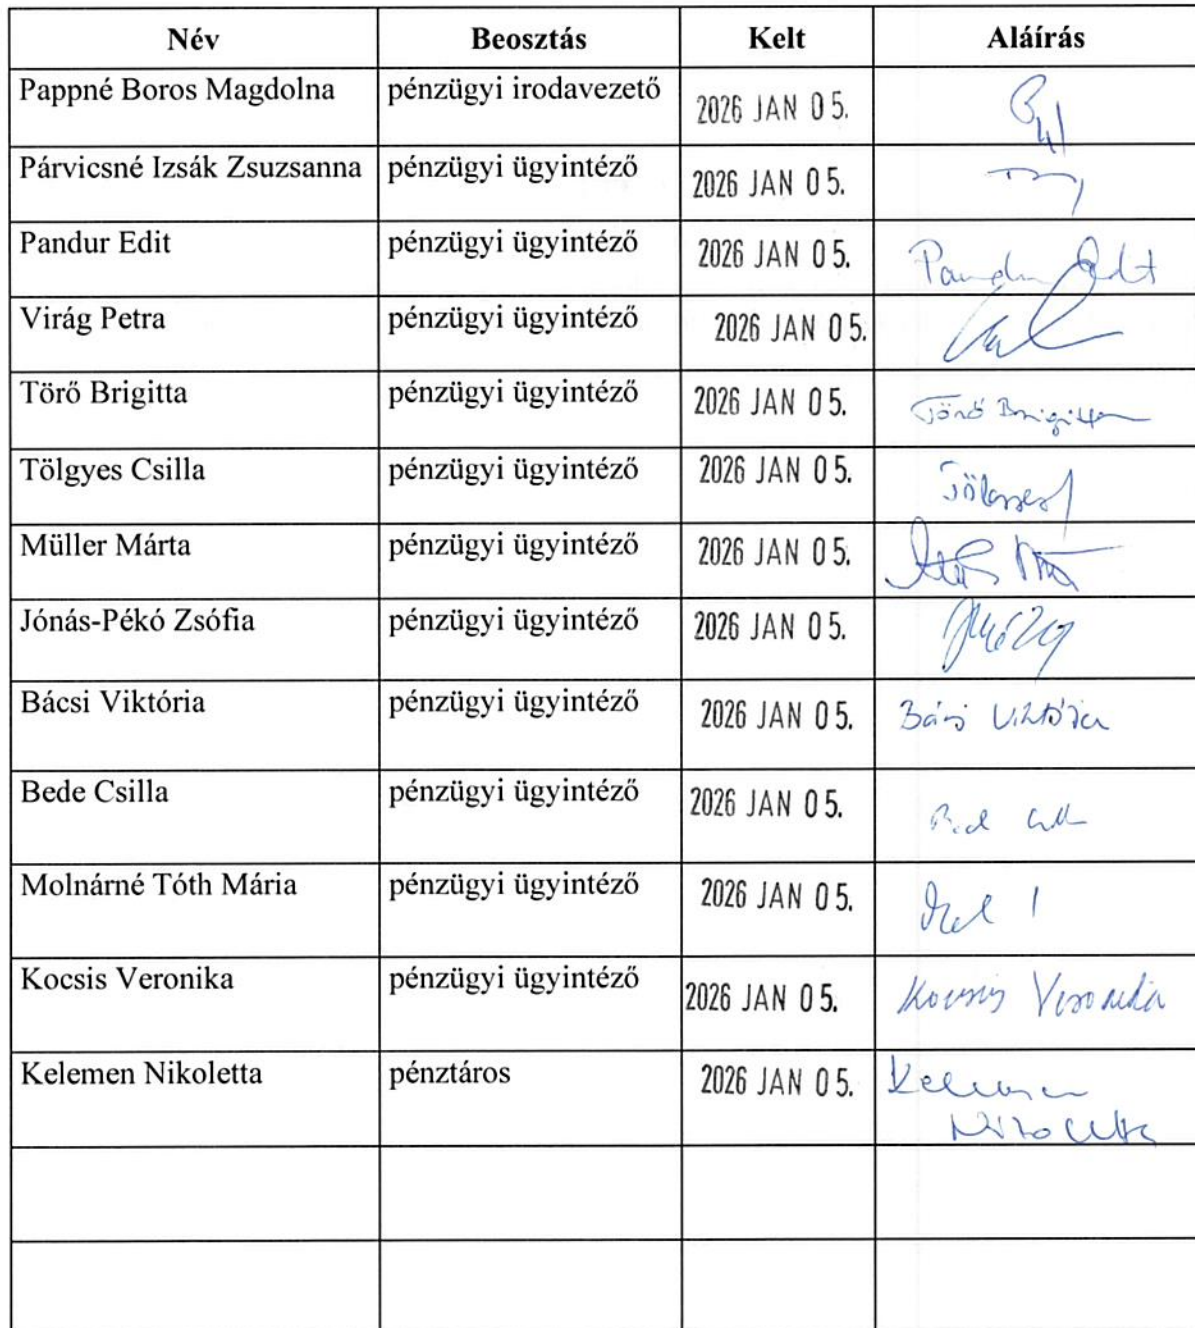 Név Beosztás Kelt Aláírás
Pappné Boros Magdolna pénzügyi irodavezető 2026 JAN 05.
Párvicsné Izsák Zsuzsanna pénzügyi ügyintéző 2026 JAN 05.
Pandur Edit pénzügyi ügyintéző 2026 JAN 05. Pandur Edit
Virág Petra pénzügyi ügyintéző 2026 JAN 05.
Törő Brigitta pénzügyi ügyintéző 2026 JAN 05. Törő Brigitta
Tölgyes Csilla pénzügyi ügyintéző 2026 JAN 05. Tölgyes
Müller Márta pénzügyi ügyintéző 2026 JAN 05.
Jónás-Pékó Zsófia pénzügyi ügyintéző 2026 JAN 05.
Bácsi Viktória pénzügyi ügyintéző 2026 JAN 05. Bácsi Viktória
Bede Csilla pénzügyi ügyintéző 2026 JAN 05.
Molnárné Tóth Mária pénzügyi ügyintéző 2026 JAN 05.
Kocsis Veronika pénzügyi ügyintéző 2026 JAN 05. Kocsis Veronika
Kelemen Nikoletta pénztáros 2026 JAN 05. Kelemen
Nikoletta